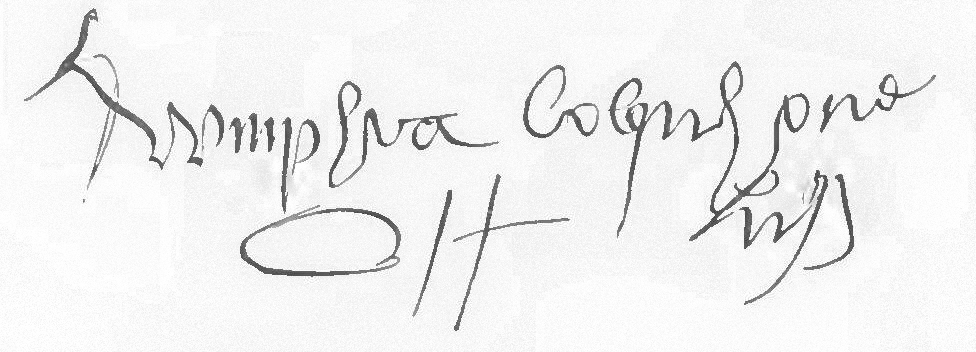 Hwmphra Colquhone
Off Luss